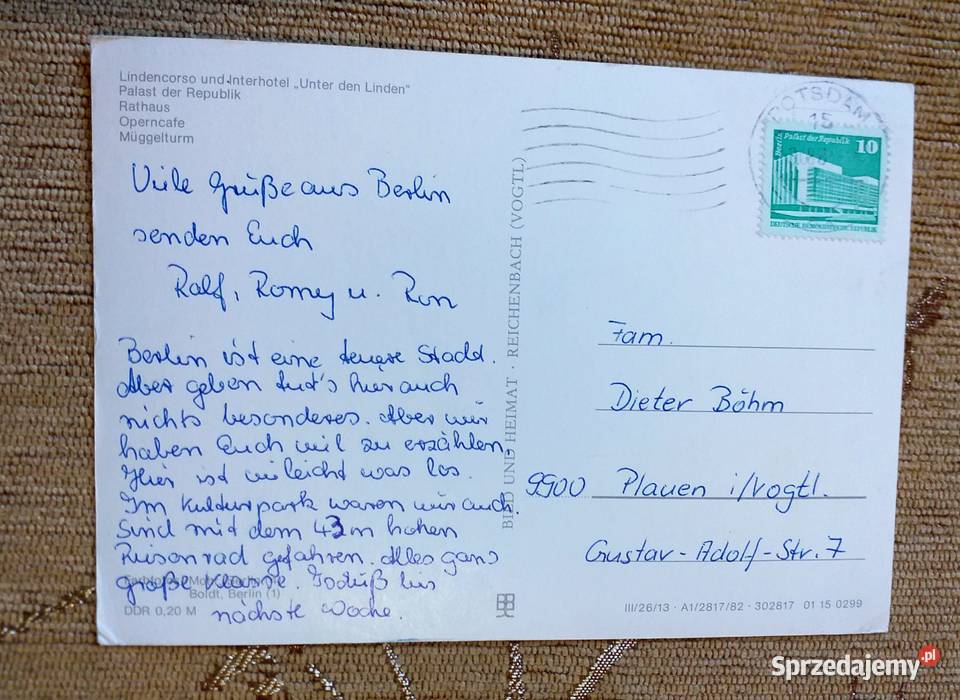 Lindencorso und Interhotel „Unter den Linden"
Palast der Republik
Rathaus
Operncafe
Müggelturm
Viele Grüße aus Berlin
senden Euch
Ralf, Romy u. Ron
Berlin ist eine teuere Stadt.
Aber geben tut's hier auch
nichts besonderes. Aber wir
haben Euch viel zu erzählen.
Hier ist vieleicht was los.
Im Kulturpark waren wir auch.
Sind mit dem 43m hohen
Riesenrad gefahren. Alles ganz
große Klasse. Tschüß bis
nächste Woche.
Boldt, Berlin (1)
DDR 0,20 M
BILD UND HEIMAT · REICHENBACH (VOGTL)
POTSDAM
15
Berlin, Palast der Republik
10
DEUTSCHE DEMOKRATISCHE REPUBLIK
Fam.
Dieter Böhm
9900 Plauen i/Vogtl.
Gustav-Adolf-Str. 7
III/26/13 · A1/2817/82 · 302817 01 15 0299
Sprzedajemy.pl